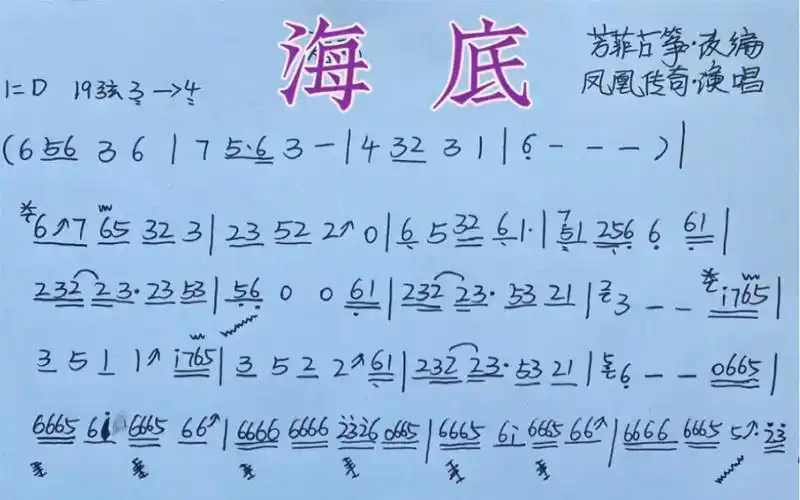 海 底
芳菲古筝·改编
凤凰传奇·演唱
1=D 19弦3→4
(6 56 3 6 | 7 5·6 3 - | 4 32 3 1 | 6 - - - ) |
6↗7 65 32 3 | 23 52 2↗ 0 | 6 5 32 61· | 7 51 256 6 61 |
232 23· 23 53 | 56 0 0 61 | 232 23· 53 21 | 2 3 - - i765 |
3 5 1 1↗ i765 | 3 5 2 2↗ 61 | 232 23· 53 21 | 5 6 - - 0665 |
6665 6i 6665 66↗ | 6666 6666 2326 0665 | 6665 6i 6665 66↗ | 6666 6665 5↗· 23